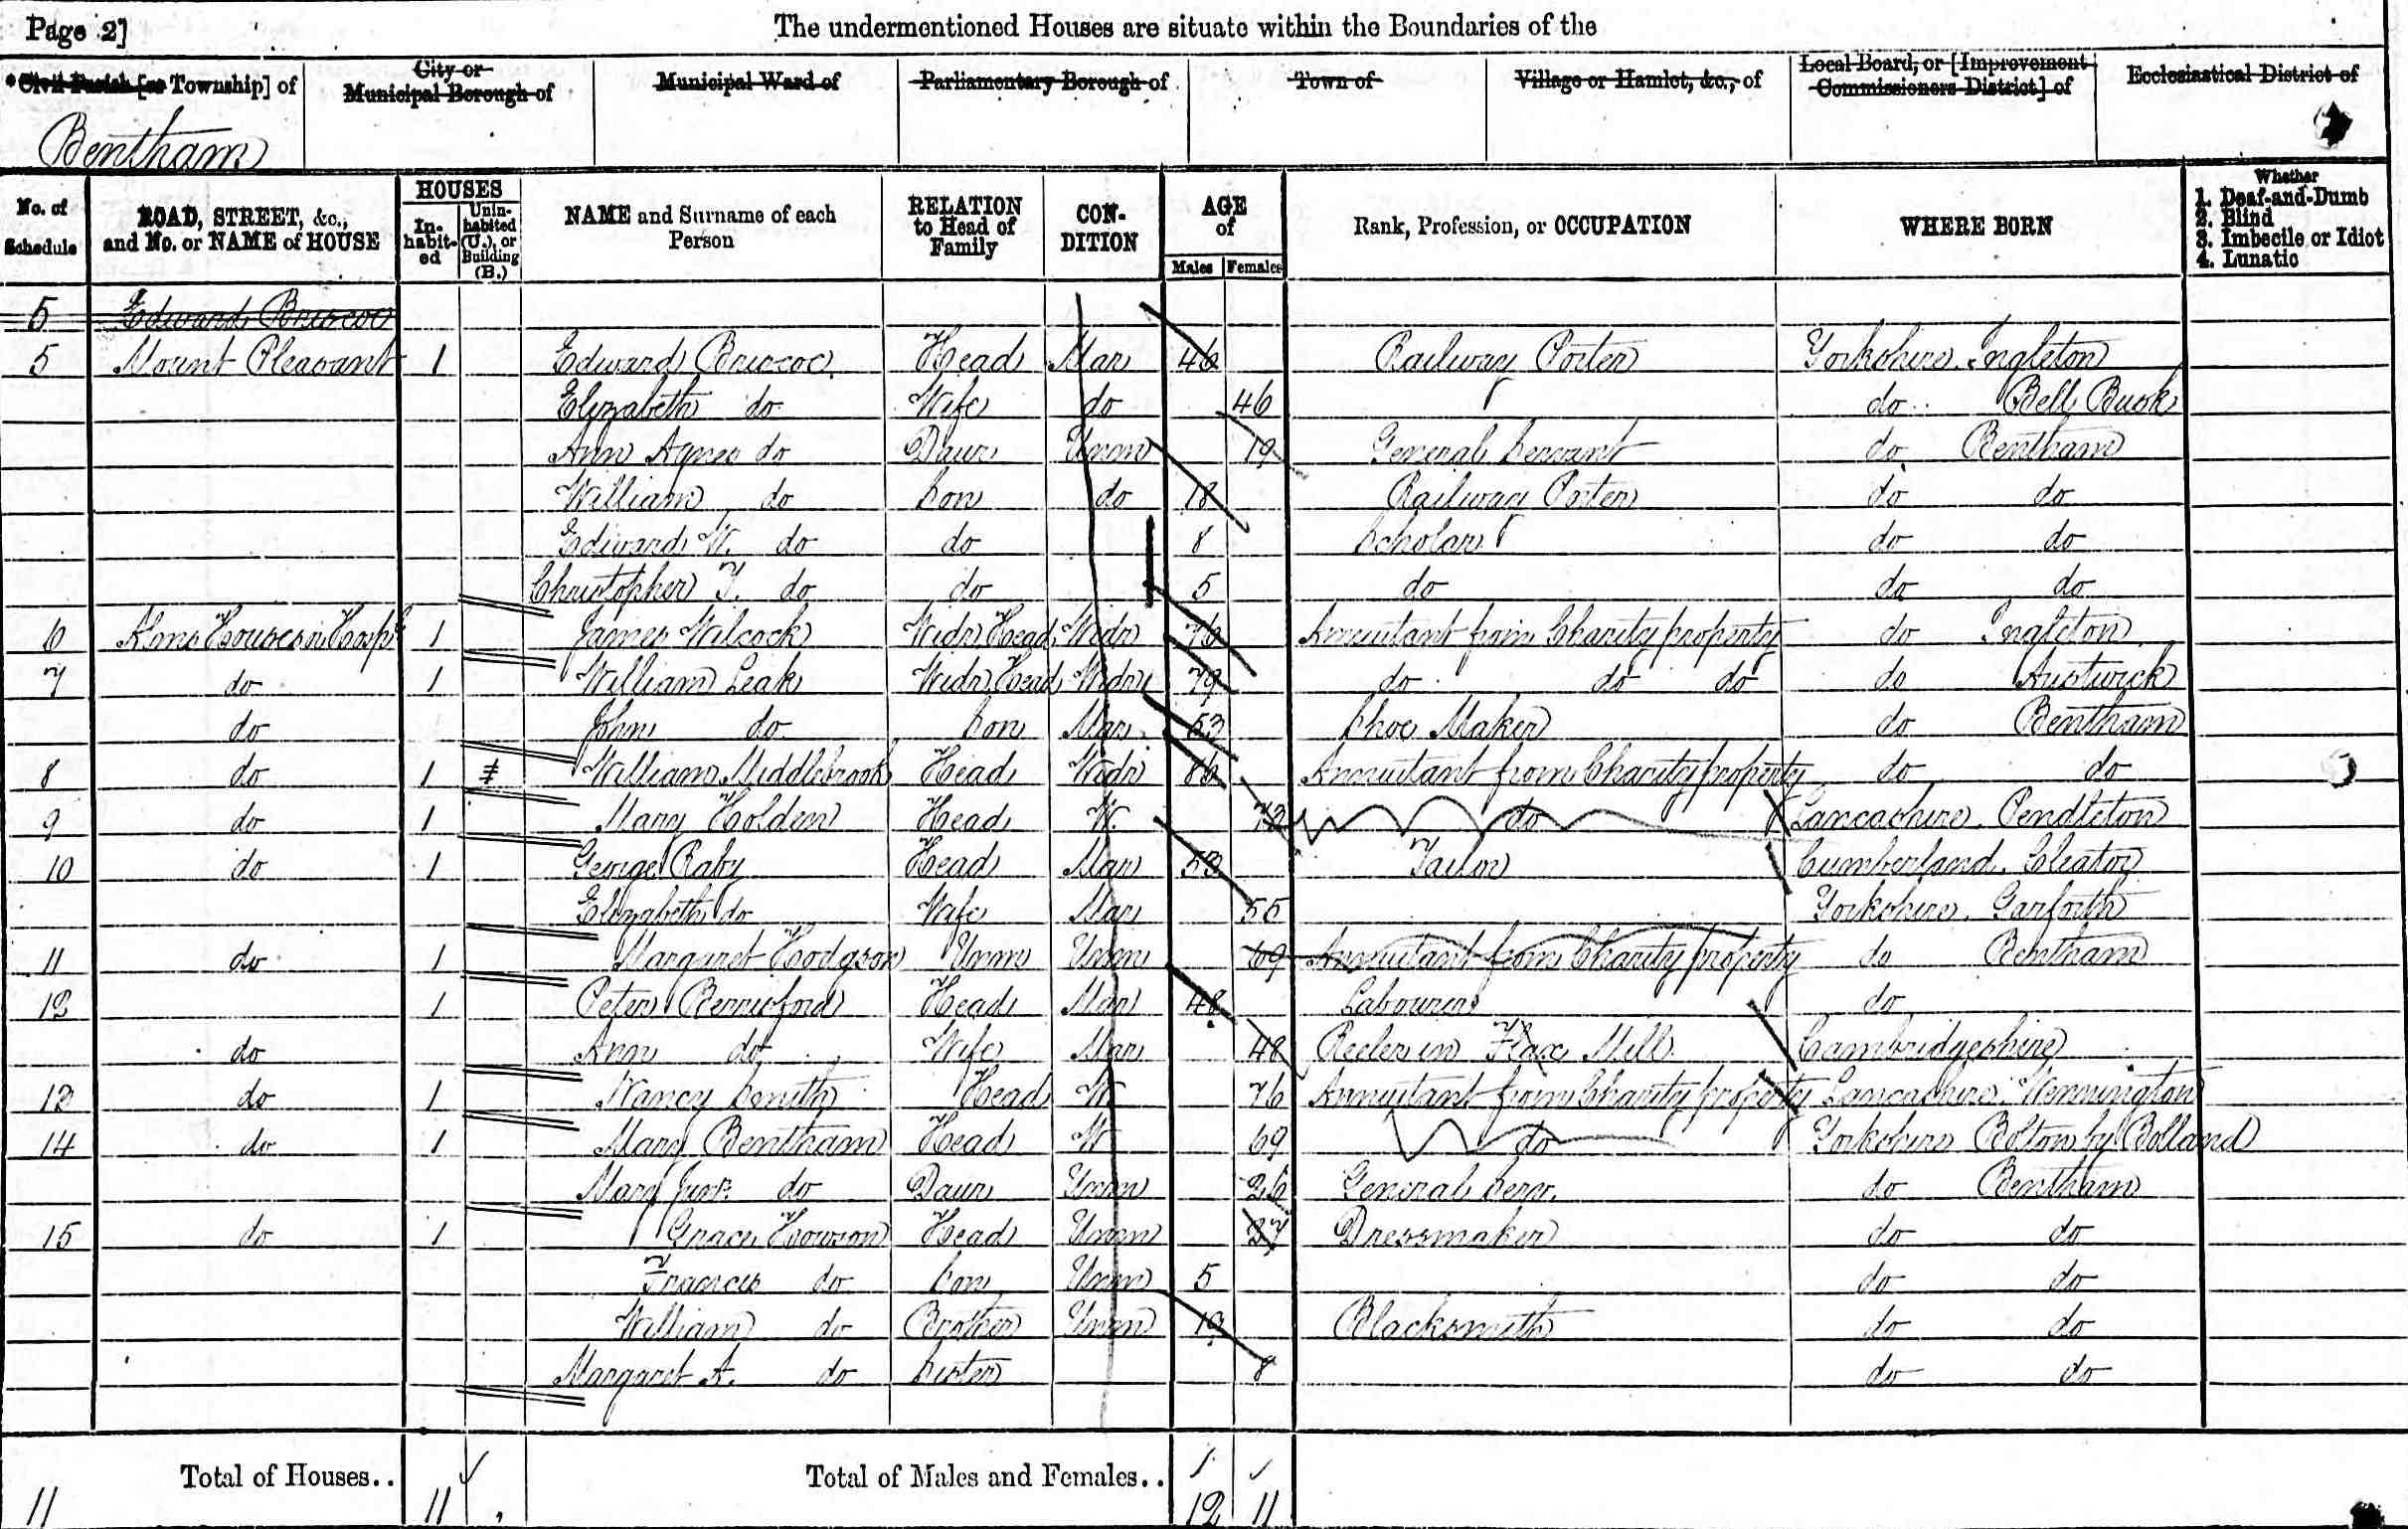 Page 2]
The undermentioned Houses are situate within the Boundaries of the
*Civil Parish [or Township] of
City or Municipal Borough of
Municipal Ward of
Parliamentary Borough of
Town of
Village or Hamlet, &c., of
Local Board, or [Improvement Commissioners District] of
Ecclesiastical District of
Bentham
No. of Schedule
ROAD, STREET, &c., and No. or NAME of HOUSE
HOUSES
In-habit-ed
Unin-habited (U.), or Building (B.)
NAME and Surname of each Person
RELATION to Head of Family
CON-DITION
AGE of
Males
Females
Rank, Profession, or OCCUPATION
WHERE BORN
Whether
1. Deaf-and-Dumb
2. Blind
3. Imbecile or Idiot
4. Lunatic
5 Edward Briscoe
5 Mount Pleasant 1 Edward Briscoe Head Mar 46 Railway Porter Yorkshire Ingleton
Elizabeth do Wife do 46 do Bell Busk
Ann Agnes do Daur Unm 19 General Servant do Bentham
William do Son do 18 Railway Porter do do
Edward W. do do 8 Scholar do do
Christopher T. do do 5 do do do
6 Alms Houses 1 James Wilcock Widr Head Widr Annuitant from Charity property do Ingleton
7 do 1 William Leak Widr Head Widr 79 do do do do Austwick
do John do Son Mar 53 Shoe Maker do Bentham
8 do 1 William Middlebrook Head Widr Annuitant from Charity property do do
9 do 1 Mary Holden Head W. 73 do Lancashire Pendleton
10 do 1 George Raby Head Mar 53 Tailor Cumberland Cleator
Elizabeth do Wife Mar 55 Yorkshire Garforth
11 do 1 Margaret Hodgson Unm Unm 69 Annuitant from Charity property do Bentham
12 1 Peter Berrisford Head Mar 48 Labourer do
do Ann do Wife Mar 48 Reeler in Flax Mill Cambridgeshire
13 do 1 Nancy Smith Head W 76 Annuitant from Charity property Lancashire Wennington
14 do 1 Mary Bentham Head W 69 do Yorkshire Bolton by Bolland
Mary Junr. do Daur Unm 26 General Serv. do Bentham
15 do 1 Grace Howson Head Unm 27 Dressmaker do do
Francis do Son Unm 5 do do
William do Brother Unm 19 Blacksmith do do
Margaret A. do Sister 8 do do
Total of Houses.. 11 Total of Males and Females.. 12 11
11